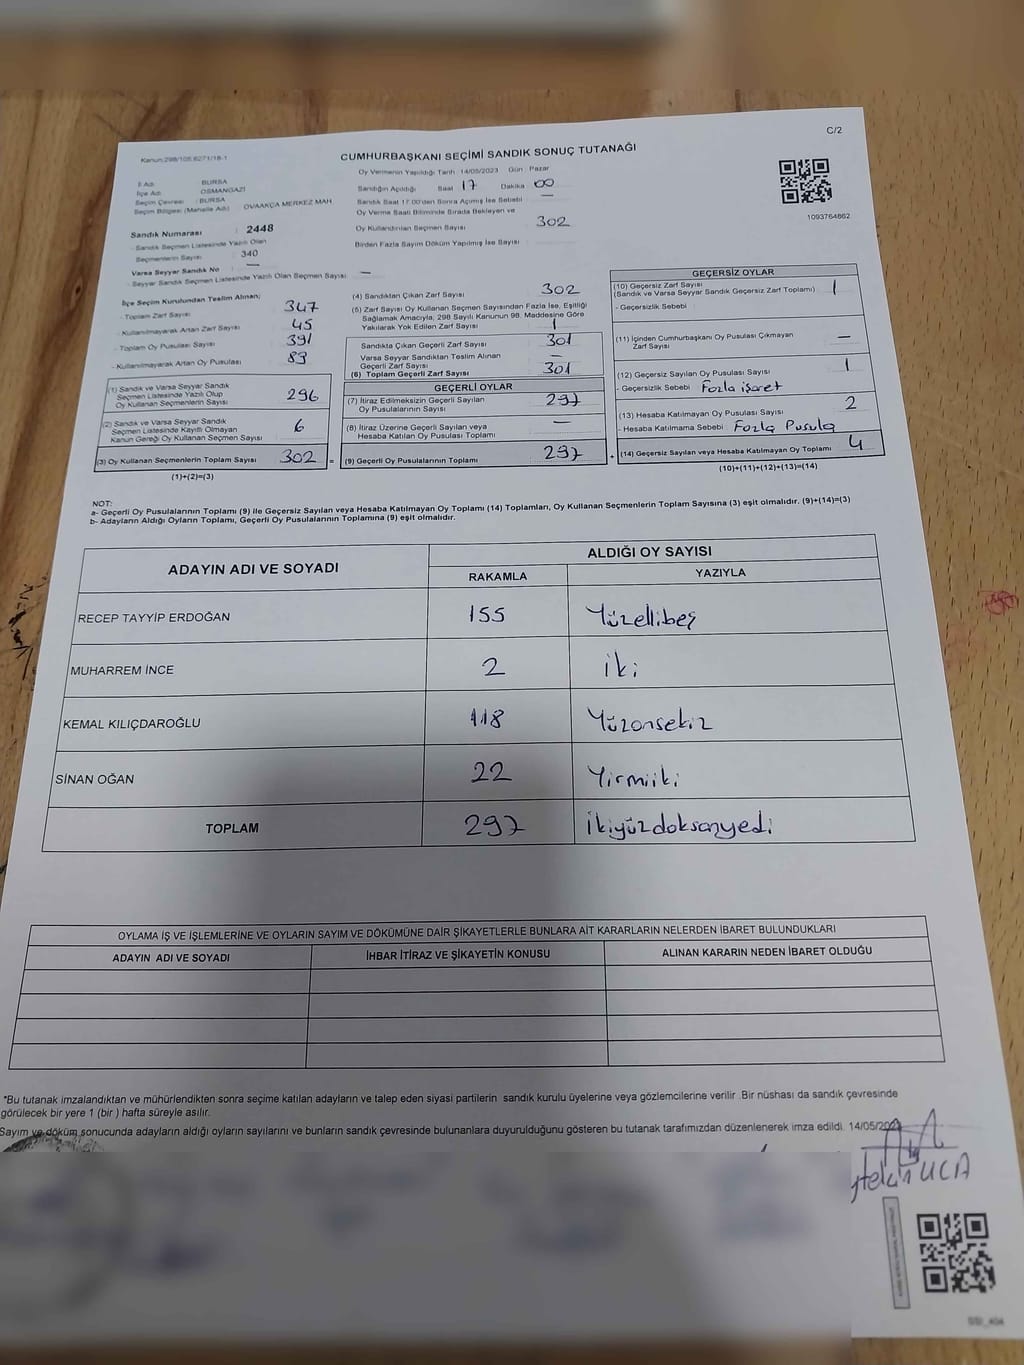 C/2
Kanun:298/105.6271/18-1
CUMHURBAŞKANI SEÇİMİ SANDIK SONUÇ TUTANAĞI
İl Adı: BURSA
İlçe Adı: OSMANGAZİ
Seçim Çevresi: BURSA
Seçim Bölgesi (Mahalle Adı): OVAAKÇA MERKEZ MAH.
Sandık Numarası: 2448
- Sandık Seçmen Listesinde Yazılı Olan Seçmenlerin Sayısı: 340
Varsa Seyyar Sandık No: —
- Seyyar Sandık Seçmen Listesinde Yazılı Olan Seçmen Sayısı —
Oy Vermenin Yapıldığı Tarih :14/05/2023 Gün : Pazar
Sandığın Açıldığı Saat 17 Dakika 00
Sandık Saat 17:00'den Sonra Açılmış İse Sebebi: —
Oy Verme Saati Bitiminde Sırada Bekleyen ve
Oy Kullandırılan Seçmen Sayısı 302
Birden Fazla Sayım Döküm Yapılmış İse Sayısı
1093764862
İlçe Seçim Kurulundan Teslim Alınan;
- Toplam Zarf Sayısı 347
- Kullanılmayarak Artan Zarf Sayısı 45
- Toplam Oy Pusulası Sayısı 391
- Kullanılmayarak Artan Oy Pusulası 89
(1) Sandık ve Varsa Seyyar Sandık
Seçmen Listesinde Yazılı Olup
Oy Kullanan Seçmenlerin Sayısı 296
(2) Sandık ve Varsa Seyyar Sandık
Seçmen Listesinde Kayıtlı Olmayan
Kanun Gereği Oy Kullanan Seçmen Sayısı 6
(3) Oy Kullanan Seçmenlerin Toplam Sayısı 302 =
(1)+(2)=(3)
(4) Sandıktan Çıkan Zarf Sayısı 302
(5) Zarf Sayısı Oy Kullanan Seçmen Sayısından Fazla İse, Eşitliği
Sağlamak Amacıyla, 298 Sayılı Kanunun 98. Maddesine Göre
Yakılarak Yok Edilen Zarf Sayısı 1
Sandıkta Çıkan Geçerli Zarf Sayısı 301
Varsa Seyyar Sandıktan Teslim Alınan
Geçerli Zarf Sayısı —
(6) Toplam Geçerli Zarf Sayısı 301
GEÇERLİ OYLAR
(7) İtiraz Edilmeksizin Geçerli Sayılan
Oy Pusulalarının Sayısı 297
(8) İtiraz Üzerine Geçerli Sayılan veya
Hesaba Katılan Oy Pusulası Toplamı —
(9) Geçerli Oy Pusulalarının Toplamı 297 +
GEÇERSİZ OYLAR
(10) Geçersiz Zarf Sayısı
(Sandık ve Varsa Seyyar Sandık Geçersiz Zarf Toplamı) 1
- Geçersizlik Sebebi
(11) İçinden Cumhurbaşkanı Oy Pusulası Çıkmayan
Zarf Sayısı —
(12) Geçersiz Sayılan Oy Pusulası Sayısı 1
- Geçersizlik Sebebi Fazla işaret
(13) Hesaba Katılmayan Oy Pusulası Sayısı 2
- Hesaba Katılmama Sebebi Fazla Pusula
(14) Geçersiz Sayılan veya Hesaba Katılmayan Oy Toplamı 4
(10)+(11)+(12)+(13)=(14)
NOT:
a- Geçerli Oy Pusulalarının Toplamı (9) ile Geçersiz Sayılan veya Hesaba Katılmayan Oy Toplamı (14) Toplamları, Oy Kullanan Seçmenlerin Toplam Sayısına (3) eşit olmalıdır. (9)+(14)=(3)
b- Adayların Aldığı Oyların Toplamı, Geçerli Oy Pusulalarının Toplamına (9) eşit olmalıdır.
ADAYIN ADI VE SOYADI
ALDIĞI OY SAYISI
RAKAMLA YAZIYLA
RECEP TAYYİP ERDOĞAN 155 Yüzellibeş
MUHARREM İNCE 2 iki
KEMAL KILIÇDAROĞLU 118 Yüzonsekiz
SİNAN OĞAN 22 Yirmiiki
TOPLAM 297 ikiyüzdoksanyedi
OYLAMA İŞ VE İŞLEMLERİNE VE OYLARIN SAYIM VE DÖKÜMÜNE DAİR ŞİKAYETLERLE BUNLARA AİT KARARLARIN NELERDEN İBARET BULUNDUKLARI
ADAYIN ADI VE SOYADI İHBAR İTİRAZ VE ŞİKAYETİN KONUSU ALINAN KARARIN NEDEN İBARET OLDUĞU
*Bu tutanak imzalandıktan ve mühürlendikten sonra seçime katılan adayların ve talep eden siyasi partilerin sandık kurulu üyelerine veya gözlemcilerine verilir .Bir nüshası da sandık çevresinde
görülecek bir yere 1 (bir ) hafta süreyle asılır.
Sayım ve döküm sonucunda adayların aldığı oyların sayılarını ve bunların sandık çevresinde bulunanlara duyurulduğunu gösteren bu tutanak tarafımızdan düzenlenerek imza edildi. 14/05/202
UCA